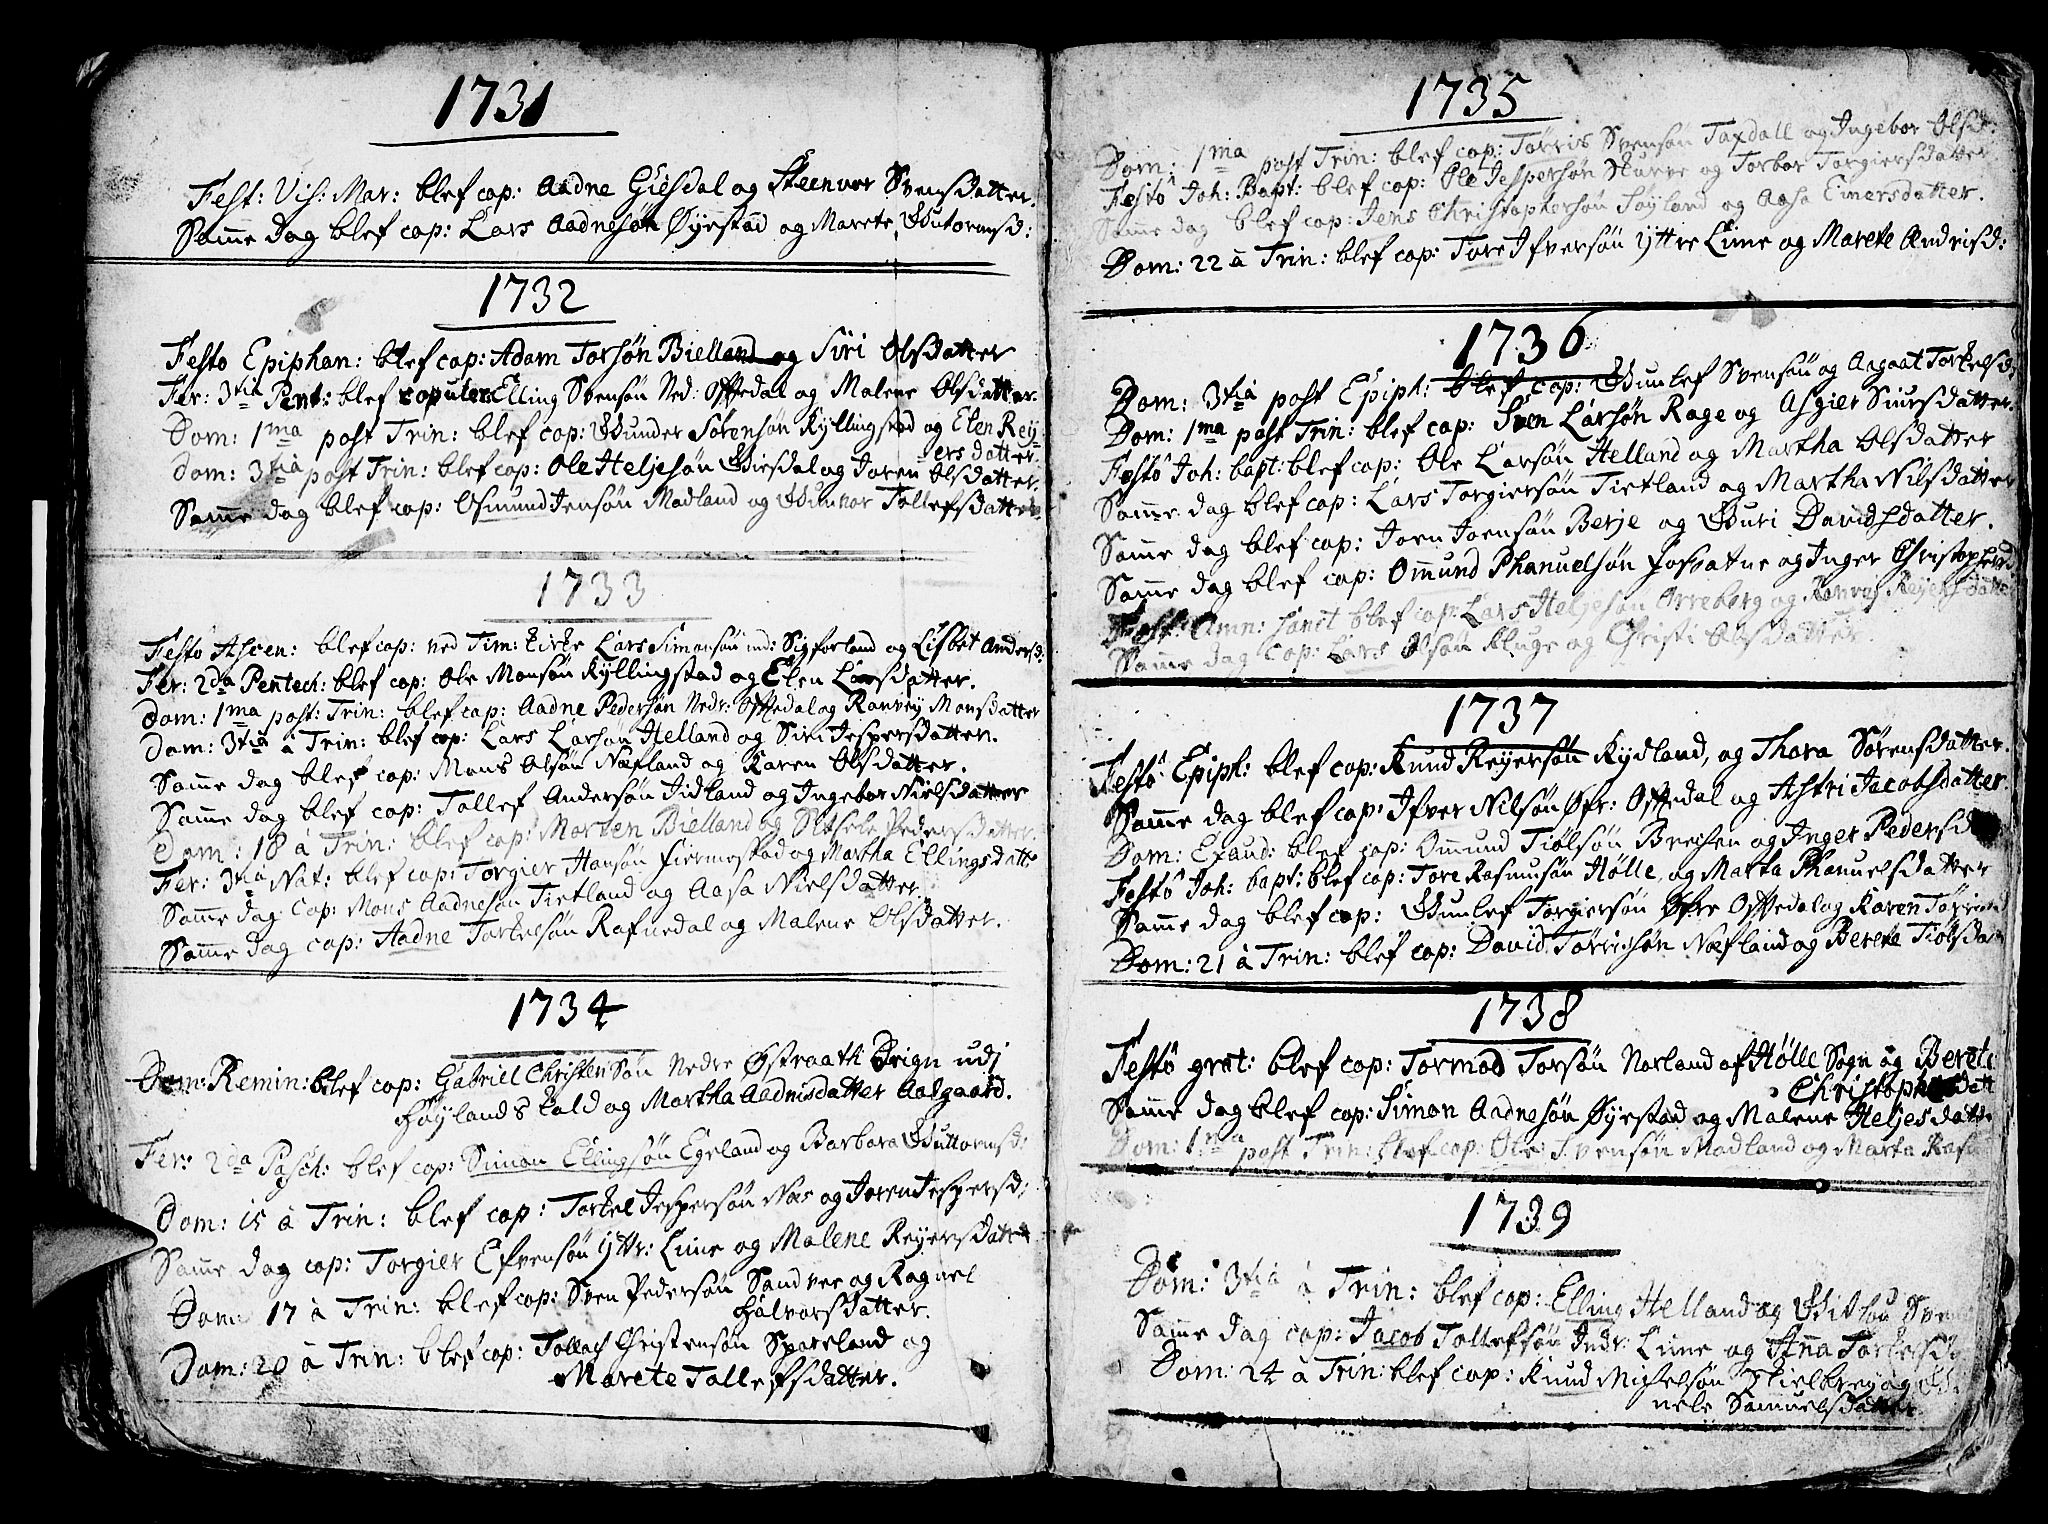 1731
Fest: Vis: Mar: blef cop: Aadne Giesdal og Steenvor Svensdatter.
Samme dag blef cop: Lars Aadnesøn Øyestad og Marete Guttormsd:
1732
Festo Epiphan: blef cop: Adam Torsøn Bielland og Siri Olsdatter
Fer: 3tia Pent: blef copuler: Elling Svensøn Ned: Oftedal og Malene Olsdatter.
Dom: 1ma post Trin: blef cop: Gunder Sørensøn Kyllingstad og Elen Rey=
ersdatter.
Dom: 3tia post Trin: blef cop: Ole Heljesøn Giesdal og Joren Olsdatter.
Samme dag blef cop: Osmund Jensøn Madland og Gunvor Tollefsdatter
1733
Festo Ascen: blef cop: ved Tim: Kirke Lars Simonsøn ind: Sigforland og Lisbet Andersd:
Fer: 2da Pentech: blef cop: Ole Monsøn Kyllingstad og Elen Larsdatter.
Dom: 1ma post: Trin: blef cop: Aadne Pedersøn Nedr: Oftedal og Ranvey Monsdatter
Dom: 3tia à Trin: blef cop: Lars Larsøn Helland og Siri Jespersdatter.
Samme dag blef cop: Mons Olsøn Næfland og Karen Olsdatter.
Samme dag blef cop: Tollef Andersøn Jidland og Ingebor Nielsdatter
Dom: 18 à Trin: blef cop: Morten Bielland og Sitsele Pedersdatter.
Fer: 3tia Nat: blef cop: Torgier Hansøn Fiermestad og Martha Ellingsdatt:
Samme dag cop: Mons Aadnesøn Tietland og Aasa Nielsdatter.
Samme dag cop: Aadne Torkelsøn Rafnedal og Malene Olsdatter.
1734
Dom: Remin: blef cop: Gabriel Christensøn Nedre Østraath Brign udj
Høylands Kald og Martha Aadnisdatter Aalgaard.
Fer: 2da Pasch: blef cop: Simon Ellingsøn Egeland og Barbara Guttormsd:
Dom: 15 à Trin: blef cop: Torkel Jespersøn Næs og Joren Jespersd:
Samme dag cop: Torgier Efvensøn Yttr: Lime og Malene Reyersdatter
Dom: 17 à Trin: blef cop: Sven Pedersøn Sandvee og Ragnel
Halvorsdatter.
Dom: 20 à Trin: blef cop: Tollach Christensøn Spareland og
Marete Tollefsdatter.
1735
Dom: 1ma post Trin: blef cop: Tørris Svensøn Taxdall og Ingebor Olsd:
Festo Joh: Bapt: blef cop: Ole Jespersøn Skurve og Torbor Torgiersdatter
Samme dag blef cop: Jens Christophersøn Søyland og Aasa Einersdatter.
Dom: 22 à Trin: blef cop: Tore Ifversøn Yttre Lime og Marete Andrisd:
1736
Dom: 3tia post Epiph: blef cop: Gunlef Svensøn og Aagaat Torkelsd:
Dom: 1ma post Trin: blef cop: Sven Larsøn Rage og Asgier Siursdatter.
Festo Joh: bapt: blef cop: Ole Larsøn Helland og Martha Olsdatter
Samme dag blef cop: Lars Torgiersøn Tietland og Martha Nilsdatter
Samme dag blef cop: Joen Joensøn Berje og Guri Davidsdatter.
Samme dag blef cop: Omund Phanuelsøn Fosvatne og Inger Christophersd
Fest: Omn: Sanct blef cop: Lars Heljesøn Orreborg og Ranvei Reyersdatter
Samme dag cop: Lars Olsøn Kluge og Christi Olsdatter.
1737
Festo Epiph: blef cop: Knud Reyersøn Kydland, og Thora Sørensdatter.
Samme dag blef cop: Ifver Nilsøn Øfr: Oftedal og Astri Jacobsdatter.
Dom: Exaud: blef cop: Omund Tiølsøn Brechen og Inger Pedersd
Festo Joh: bapt: blef cop: Tore Rasmusøn Hølle, og Marta Phanuelsdatter
Samme dag blef cop: Gunlef Torgiersøn Øfre Oftedal og Karen
Dom: 21 à Trin: blef cop: David Tørrisøn Næfland og Berete Tiølsda
1738
Festo grat: blef cop: Tormod Torsøn Norland af Hølle Sogn og Berete
Christophersdatt
Samme dag blef cop: Simon Aadnesøn Øyestad og Malene Heljesdatte
Dom: 1ma post Trin: blef cop: Ole Svensøn Madland og Marta
1739
Dom: 3tia à Trin: blef cop: Elling Helland og Githa Sven
Samme dag cop: Jacob Tollefsøn Indr: Lime og Anna Torkelsd
Dom: 24 à Trin: blef cop: Knud Michelsøn Skielbrey og
nele Samuelsdatter